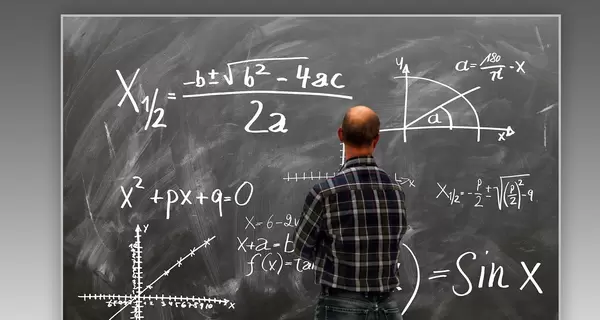 X1/2 = -b ± √b² - 4ac / 2a
y
a = 180/π · x
a
x
x² + px + q = 0
x
X1/2 = - p/2 ± √(p/2)² - q
x = 6 -
x + a = b
f(x) =
y
x
) = Sin x